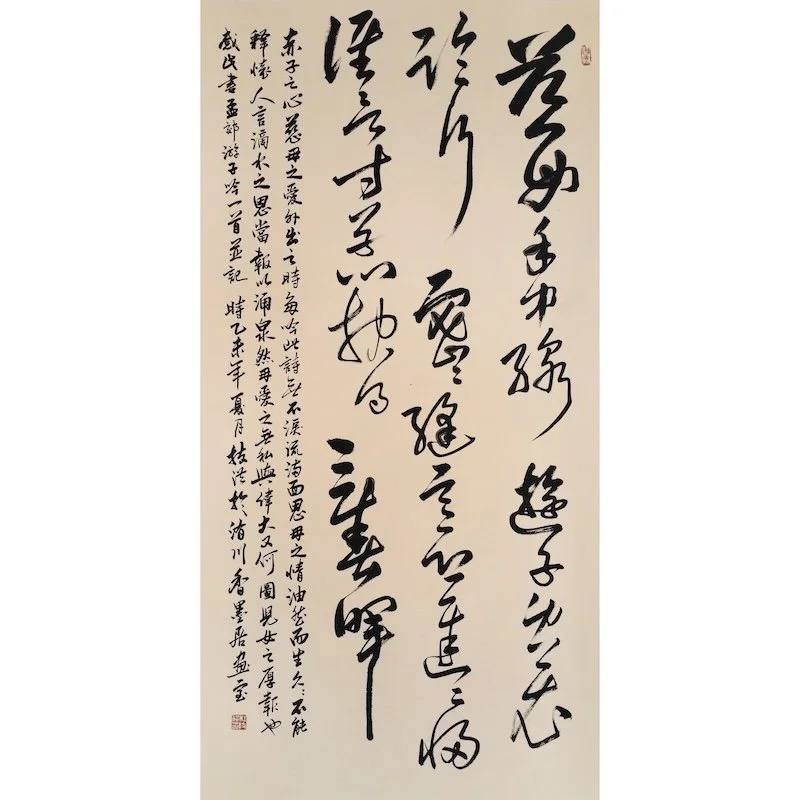 慈母手中線遊子身上衣
臨行密密縫意恐遲遲歸
誰言寸草心報得三春暉
赤子之心慈母之愛外出之時每吟此詩無不淚流滿面思母之情油然而生久久不能
釋懷人言滴水之恩當報以涌泉然母愛之無私與偉大又何圖兒女之厚報也
書孟郊游子吟一首並記 時乙未年夏月於洧川香墨居畫室